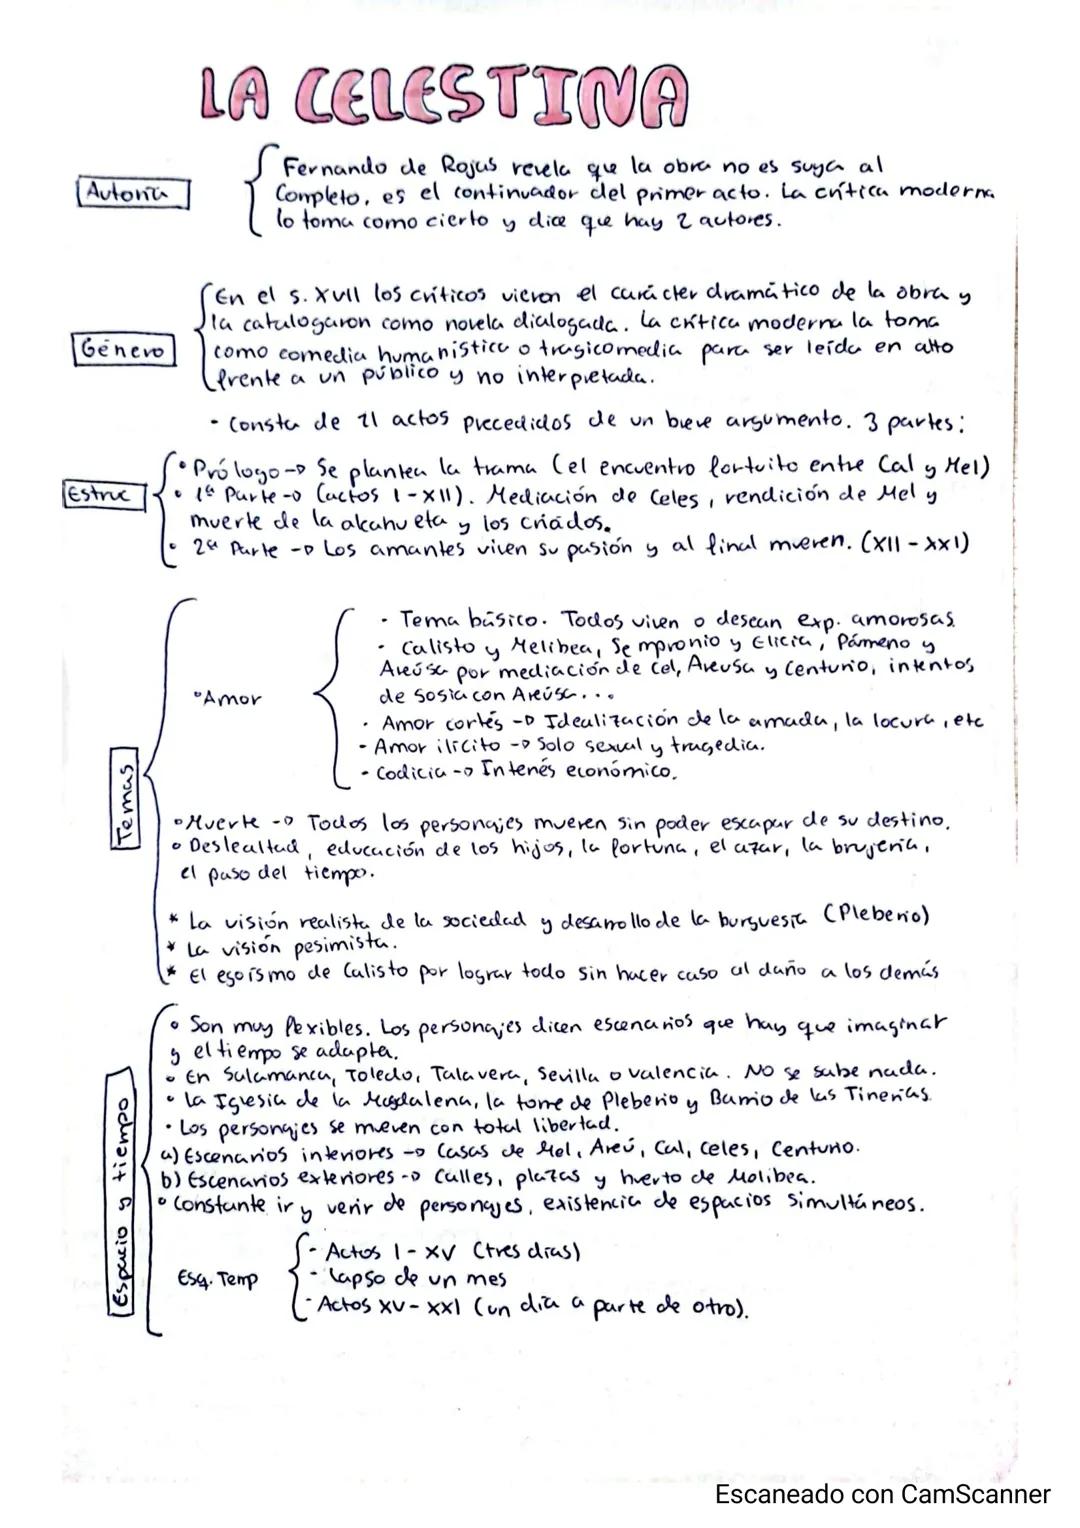 LA CELESTINA
Autoría
Fernando de Rojas revela que la obra no es suya al
Completo, es el continuador del primer acto. La crítica moderna
lo toma como cierto y dice que hay 2 autores.
Género
En el s. XVII los críticos vieron el carácter dramático de la obra y
la catalogaron como novela dialogada. La crítica moderna la toma
como comedia humanística o tragicomedia para ser leída en alto
frente a un público y no interpretada.
- Consta de 21 actos precedidos de un breve argumento. 3 partes:
Estruc
• Prólogo → Se plantea la trama (el encuentro fortuito entre Cal y Mel)
• 1ª Parte → (actos I-XII). Mediación de Celes, rendición de Mel y
muerte de la alcahueta y los criados.
• 2ª Parte → Los amantes viven su pasión y al final mueren. (XII-XXI)
Temas
• Amor
- Tema básico. Todos viven o desean exp. amorosas.
- Calisto y Melibea, Sempronio y Elicia, Pármeno y
Areúsa por mediación de Cel, Areusa y Centurio, intentos
de Sosia con Areúsa...
- Amor cortés → Idealización de la amada, la locura, etc
- Amor ilícito → Solo sexual y tragedia.
- Codicia → Interés económico.
• Muerte → Todos los personajes mueren sin poder escapar de su destino.
• Deslealtad, educación de los hijos, la fortuna, el azar, la brujería,
el paso del tiempo.
* La visión realista de la sociedad y desarrollo de la burguesía (Pleberio)
* La visión pesimista.
* El egoísmo de Calisto por lograr todo sin hacer caso al daño a los demás
Espacio y tiempo
• Son muy flexibles. Los personajes dicen escenarios que hay que imaginar
y el tiempo se adapta.
• En Salamanca, Toledo, Talavera, Sevilla o Valencia. No se sabe nada.
• La Iglesia de la Magdalena, la torre de Pleberio y Barrio de las Tinerías.
• Los personajes se mueven con total libertad.
a) Escenarios interiores → Casas de Mel, Areú, Cal, Celes, Centurio.
b) Escenarios exteriores → Calles, plazas y huerto de Melibea.
• Constante ir y venir de personajes, existencia de espacios simultáneos.
Esq. Temp
- Actos I-XV (tres días)
- Lapso de un mes
- Actos XV-XXI (un día a parte de otro).
Escaneado con CamScanner